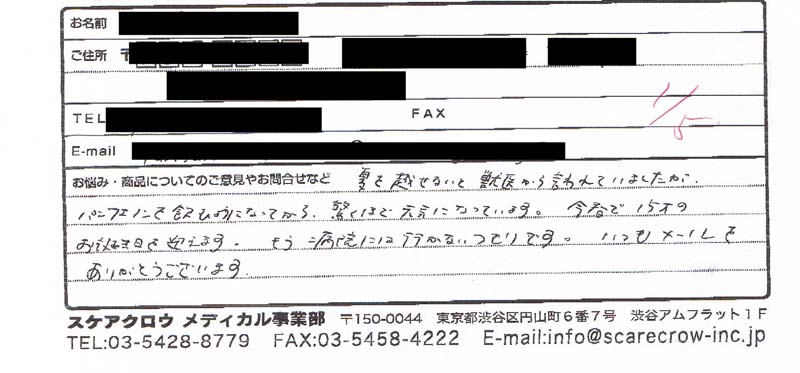 お名前
ご住所 〒
TEL FAX 1/5
E-mail
お悩み・商品についてのご意見やお問合せなど 夏を越せないと獣医から言われていましたが、
パンフェノンを飲むようになってから、驚くほど元気になっています。 今春で15才の
お誕生日を迎えます。 もう病院には行かないつもりです。 いつもメールを
ありがとうございます。
スケアクロウ メディカル事業部 〒150-0044 東京都渋谷区円山町6番7号 渋谷アムフラット1F
TEL:03-5428-8779 FAX:03-5458-4222 E-mail:info@scarecrow-inc.jp